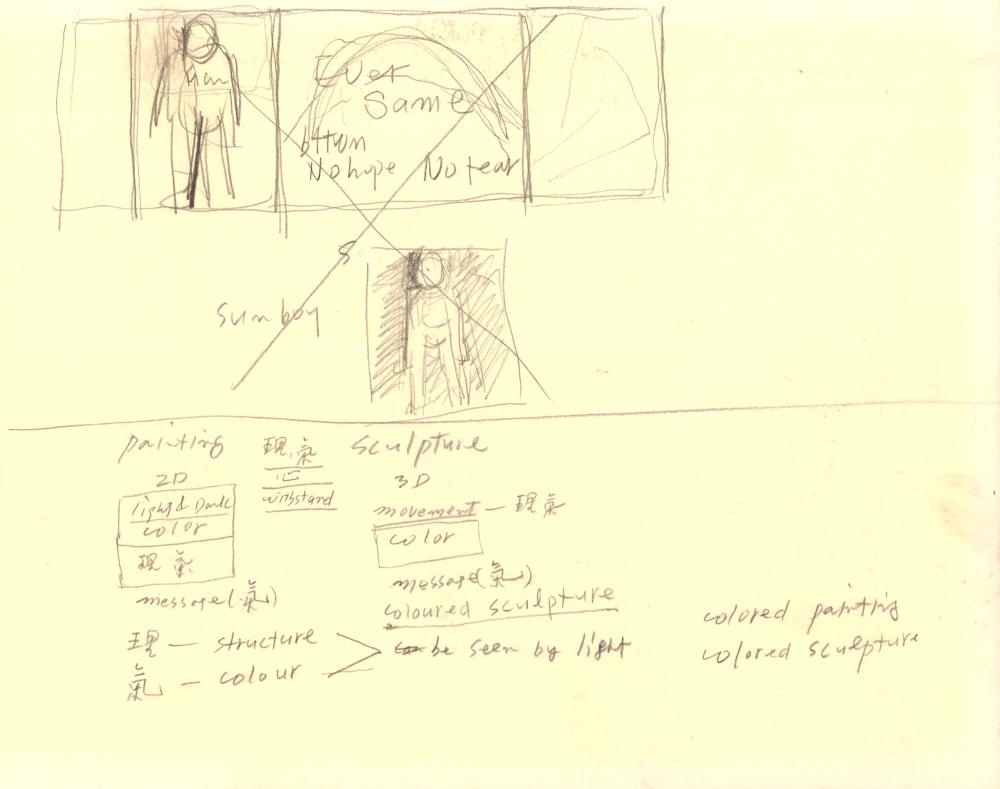 Ever
Same
No hope No fear
sun boy
painting 理氣 sculpture
2D 心 3D
light & Dark withstand movement — 理氣
color color
理氣
message(氣) message(氣)
coloured sculpture
理 — structure be seen by light colored painting
氣 — colour colored sculpture